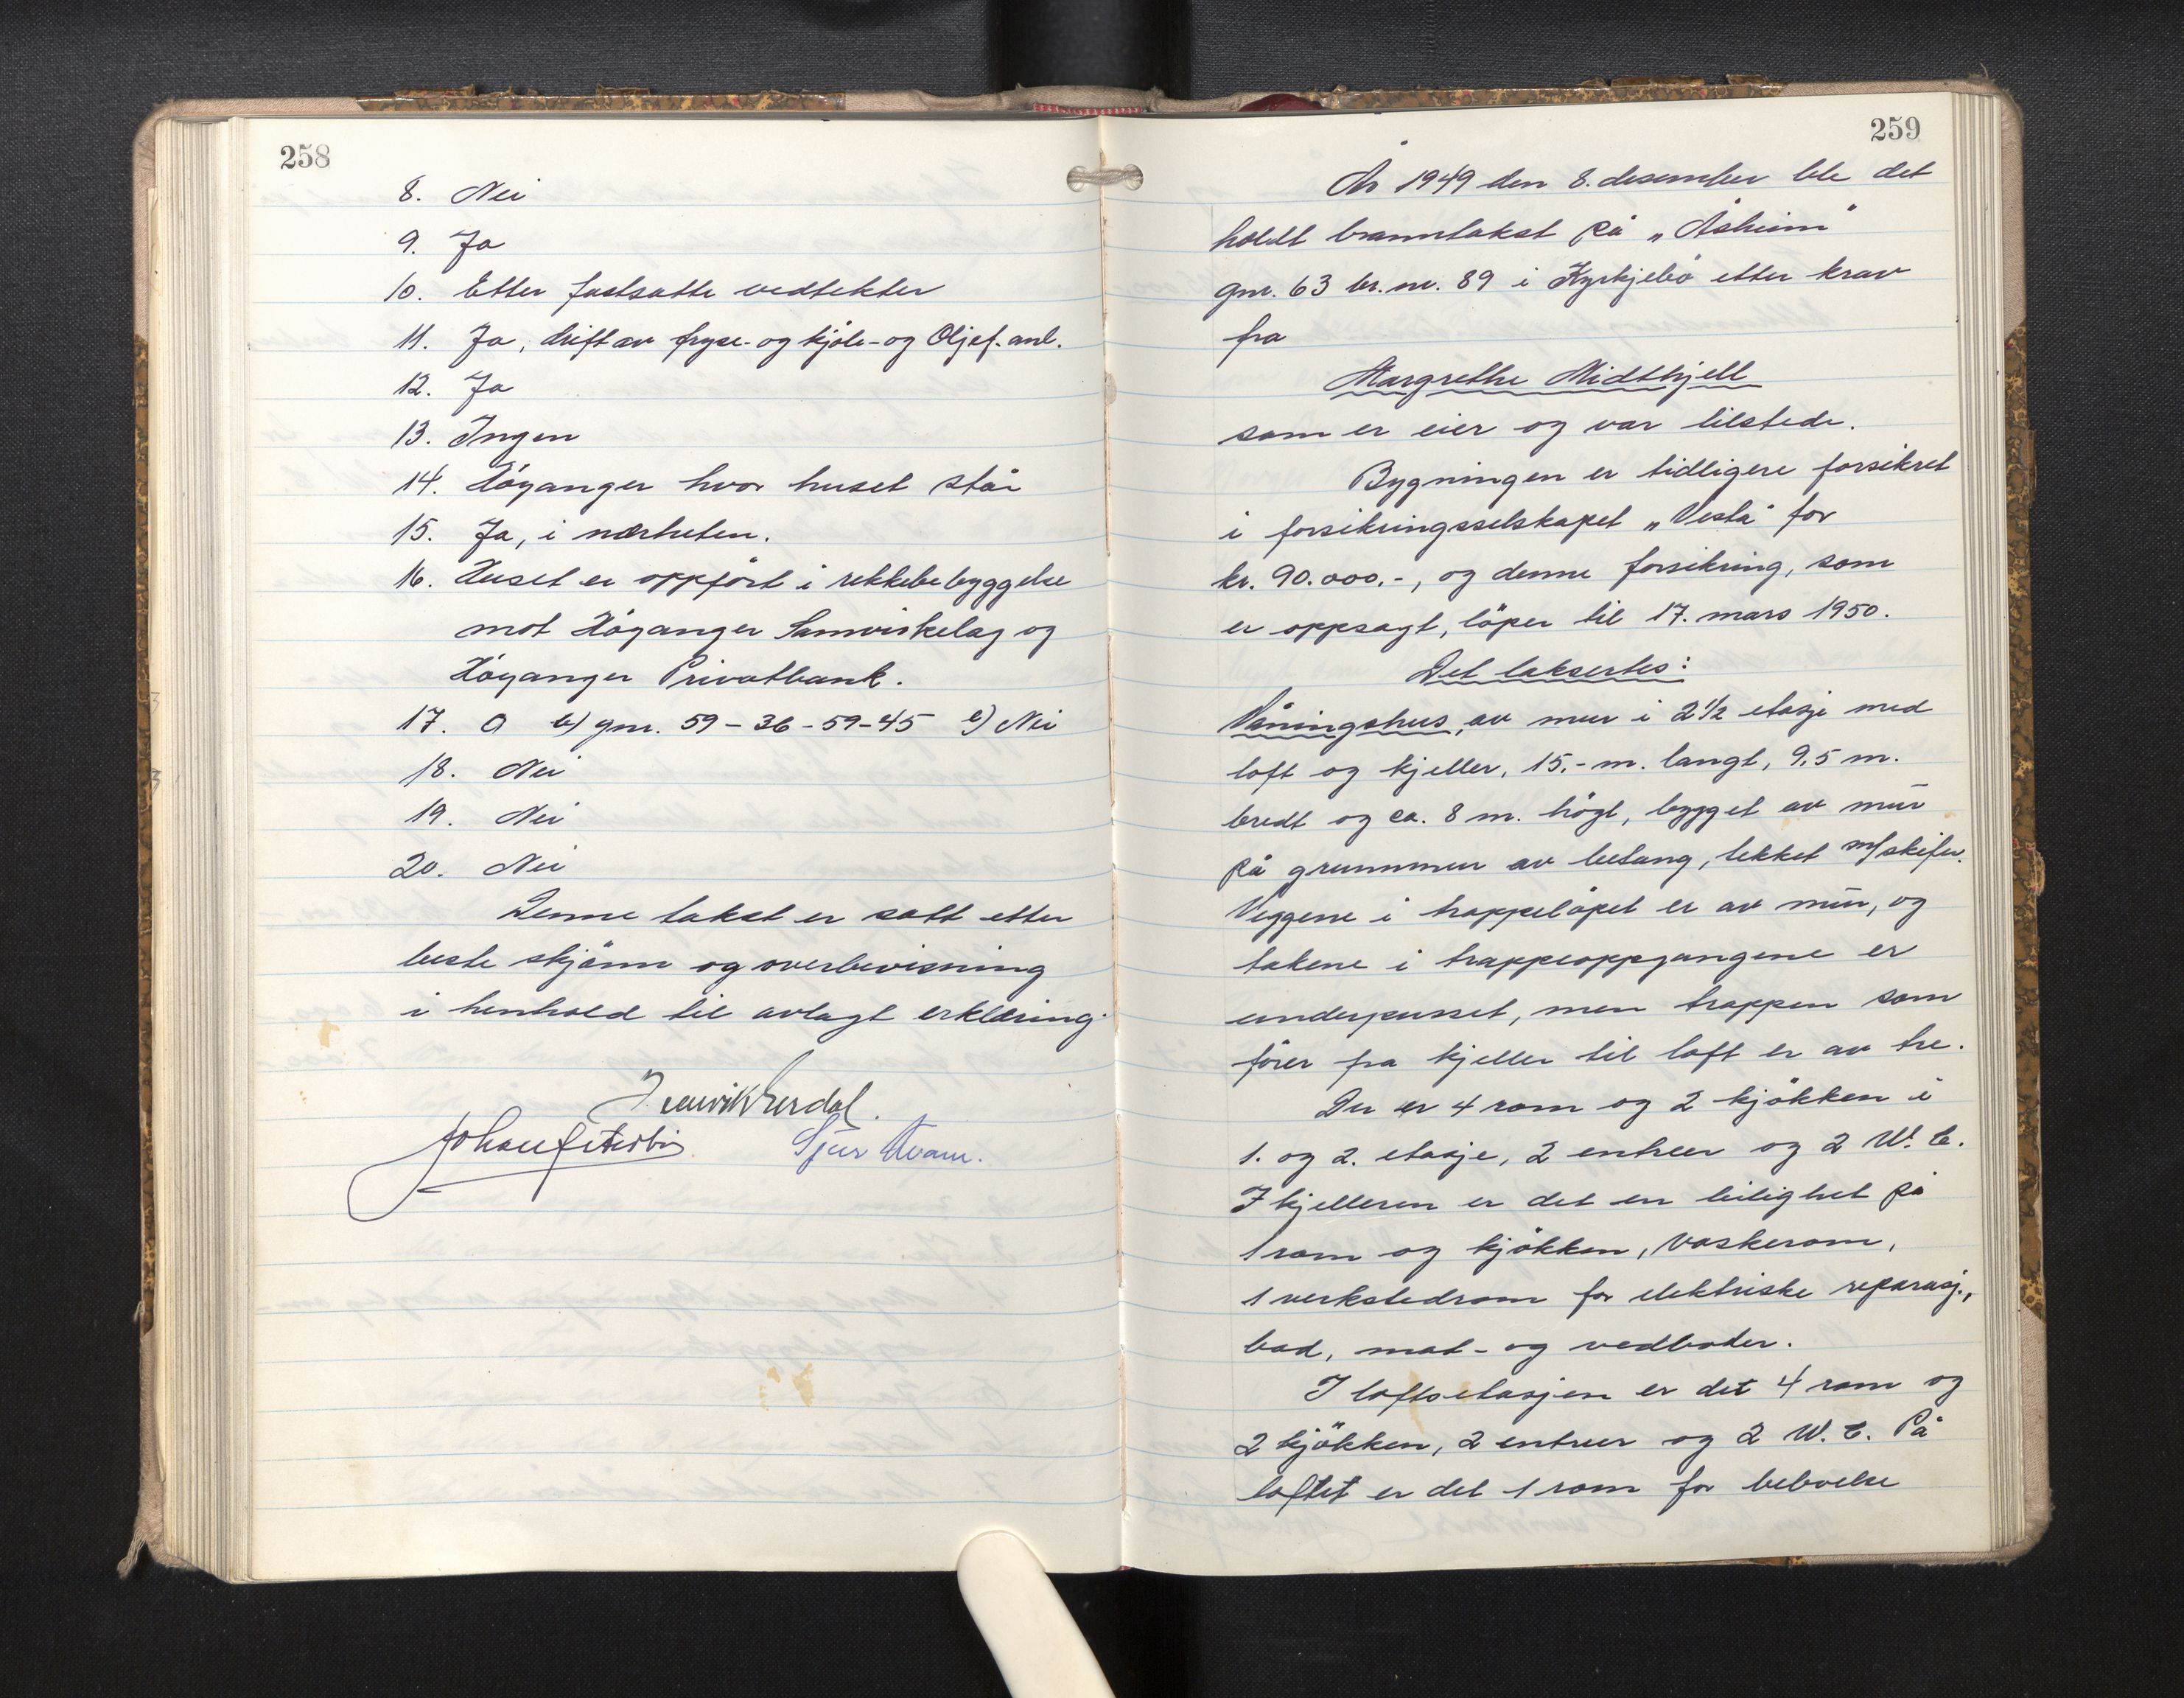 258
8. Nei
9. Ja
10. Etter fastsatte vedtekter
11. Ja, drift av fryse- og kjöle- og Oljef. anl.
12. Ja
13. Ingen
14. Höyanger hvor huset står
15. Ja, i nærheten.
16. Huset er oppfört i rekkebebyggelse
mot Höyanger Samvirkelag og
Höyanger Privatbank.
17. a b) gnr. 59-36-59-45 c) Nei
18. Nei
19. Nei
20. Nei
Denne takst er satt etter
beste skjönn og overbevisning
i henhold til avlagt erklæring.
Sjur Kvam.
259
År 1949 den 8. desember ble det
holdt branntakst på „Åsheim"
gnr. 63 br.nr. 89 i Kyrkjebö etter krav
fra
Margrethe Midthjell
som er eier og var tilstede.
Bygningen er tidligere forsikret
i forsikringsselskapet „Vesta" for
kr. 90.000.-, og denne forsikring, som
er oppsagt, löper til 17. mars 1950.
Det taksertes:
Våningshus, av mur i 2½ etasje med
loft og kjeller, 15.- m. langt, 9,5 m.
bredt og ca. 8 m. högt, bygget av mur
på grunnmur av betong, tekket m/skifer.
Veggene i trappelöpet er av mur, og
takene i trappeoppgangene er
underpusset, men trappen som
förer fra kjeller til loft er av tre.
Der er 4 rom og 2 kjökken i
1. og 2. etasje, 2 entreer og 2 W.C.
I kjelleren er det en leilighet på
1 rom og kjökken, vaskerom,
1 verkstedrom for elektriske reparasj.,
bad, mat- og vedboder.
I loftsetasjen er det 4 rom og
2 kjökken, 2 entreer og 2 W.C. På
loftet er det 1 rom for beboelse